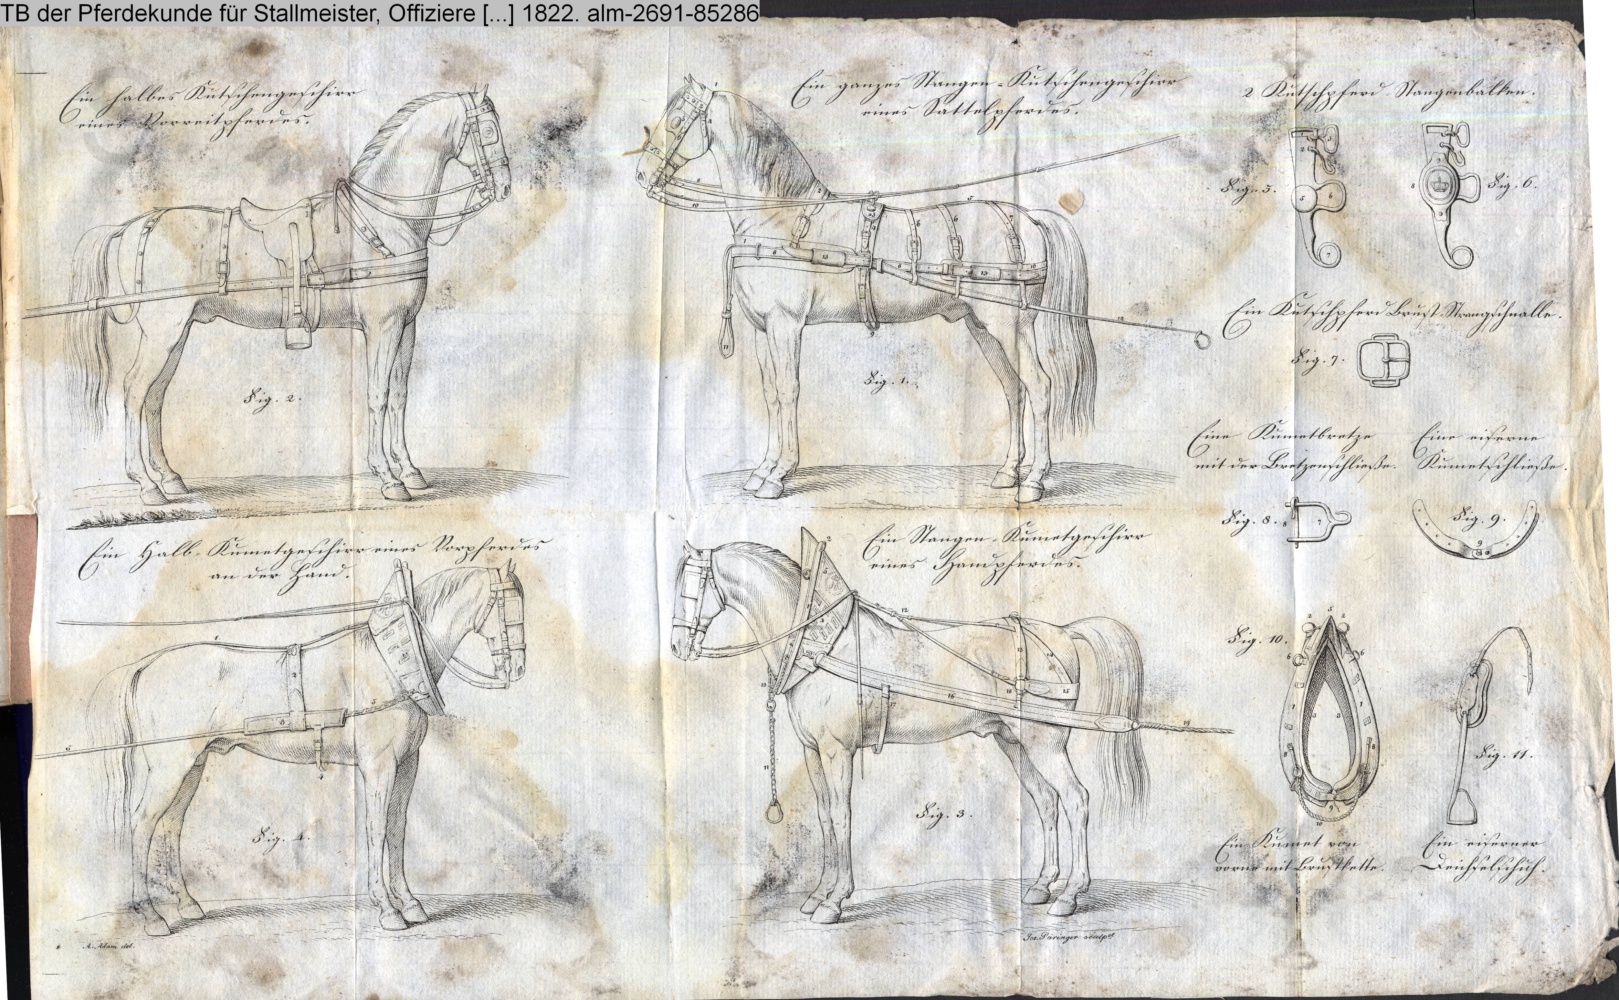 TB der Pferdekunde für Stallmeister, Offiziere [...] 1822. alm-2691-85286
Ein halbes Kutschengeschirr
eines Vorreitpferdes.
Fig. 2.
Ein ganzes Stangen-Kutschengeschirr
eines Sattelpferdes.
Fig. 1.
2 Kutschpferd Stangenbalken.
Fig. 5.
Fig. 6.
Ein Kutschpferd Brust-Strangschnalle.
Fig. 7.
Eine Kumetbretze
mit der Bretzenschließe.
Fig. 8.
Eine eiserne
Kumetschließe.
Fig. 9.
Ein Halb-Kumetgeschirr eines Vorpferdes
an der Hand.
Fig. 4.
Ein Stangen-Kumetgeschirr
eines Handpferdes.
Fig. 3.
Fig. 10.
Ein Kumet von
vorne mit Brustkette.
Fig. 11.
Ein eiserner
Deichselschuh.
A. Adam del.
Jos. Päringer sculps.